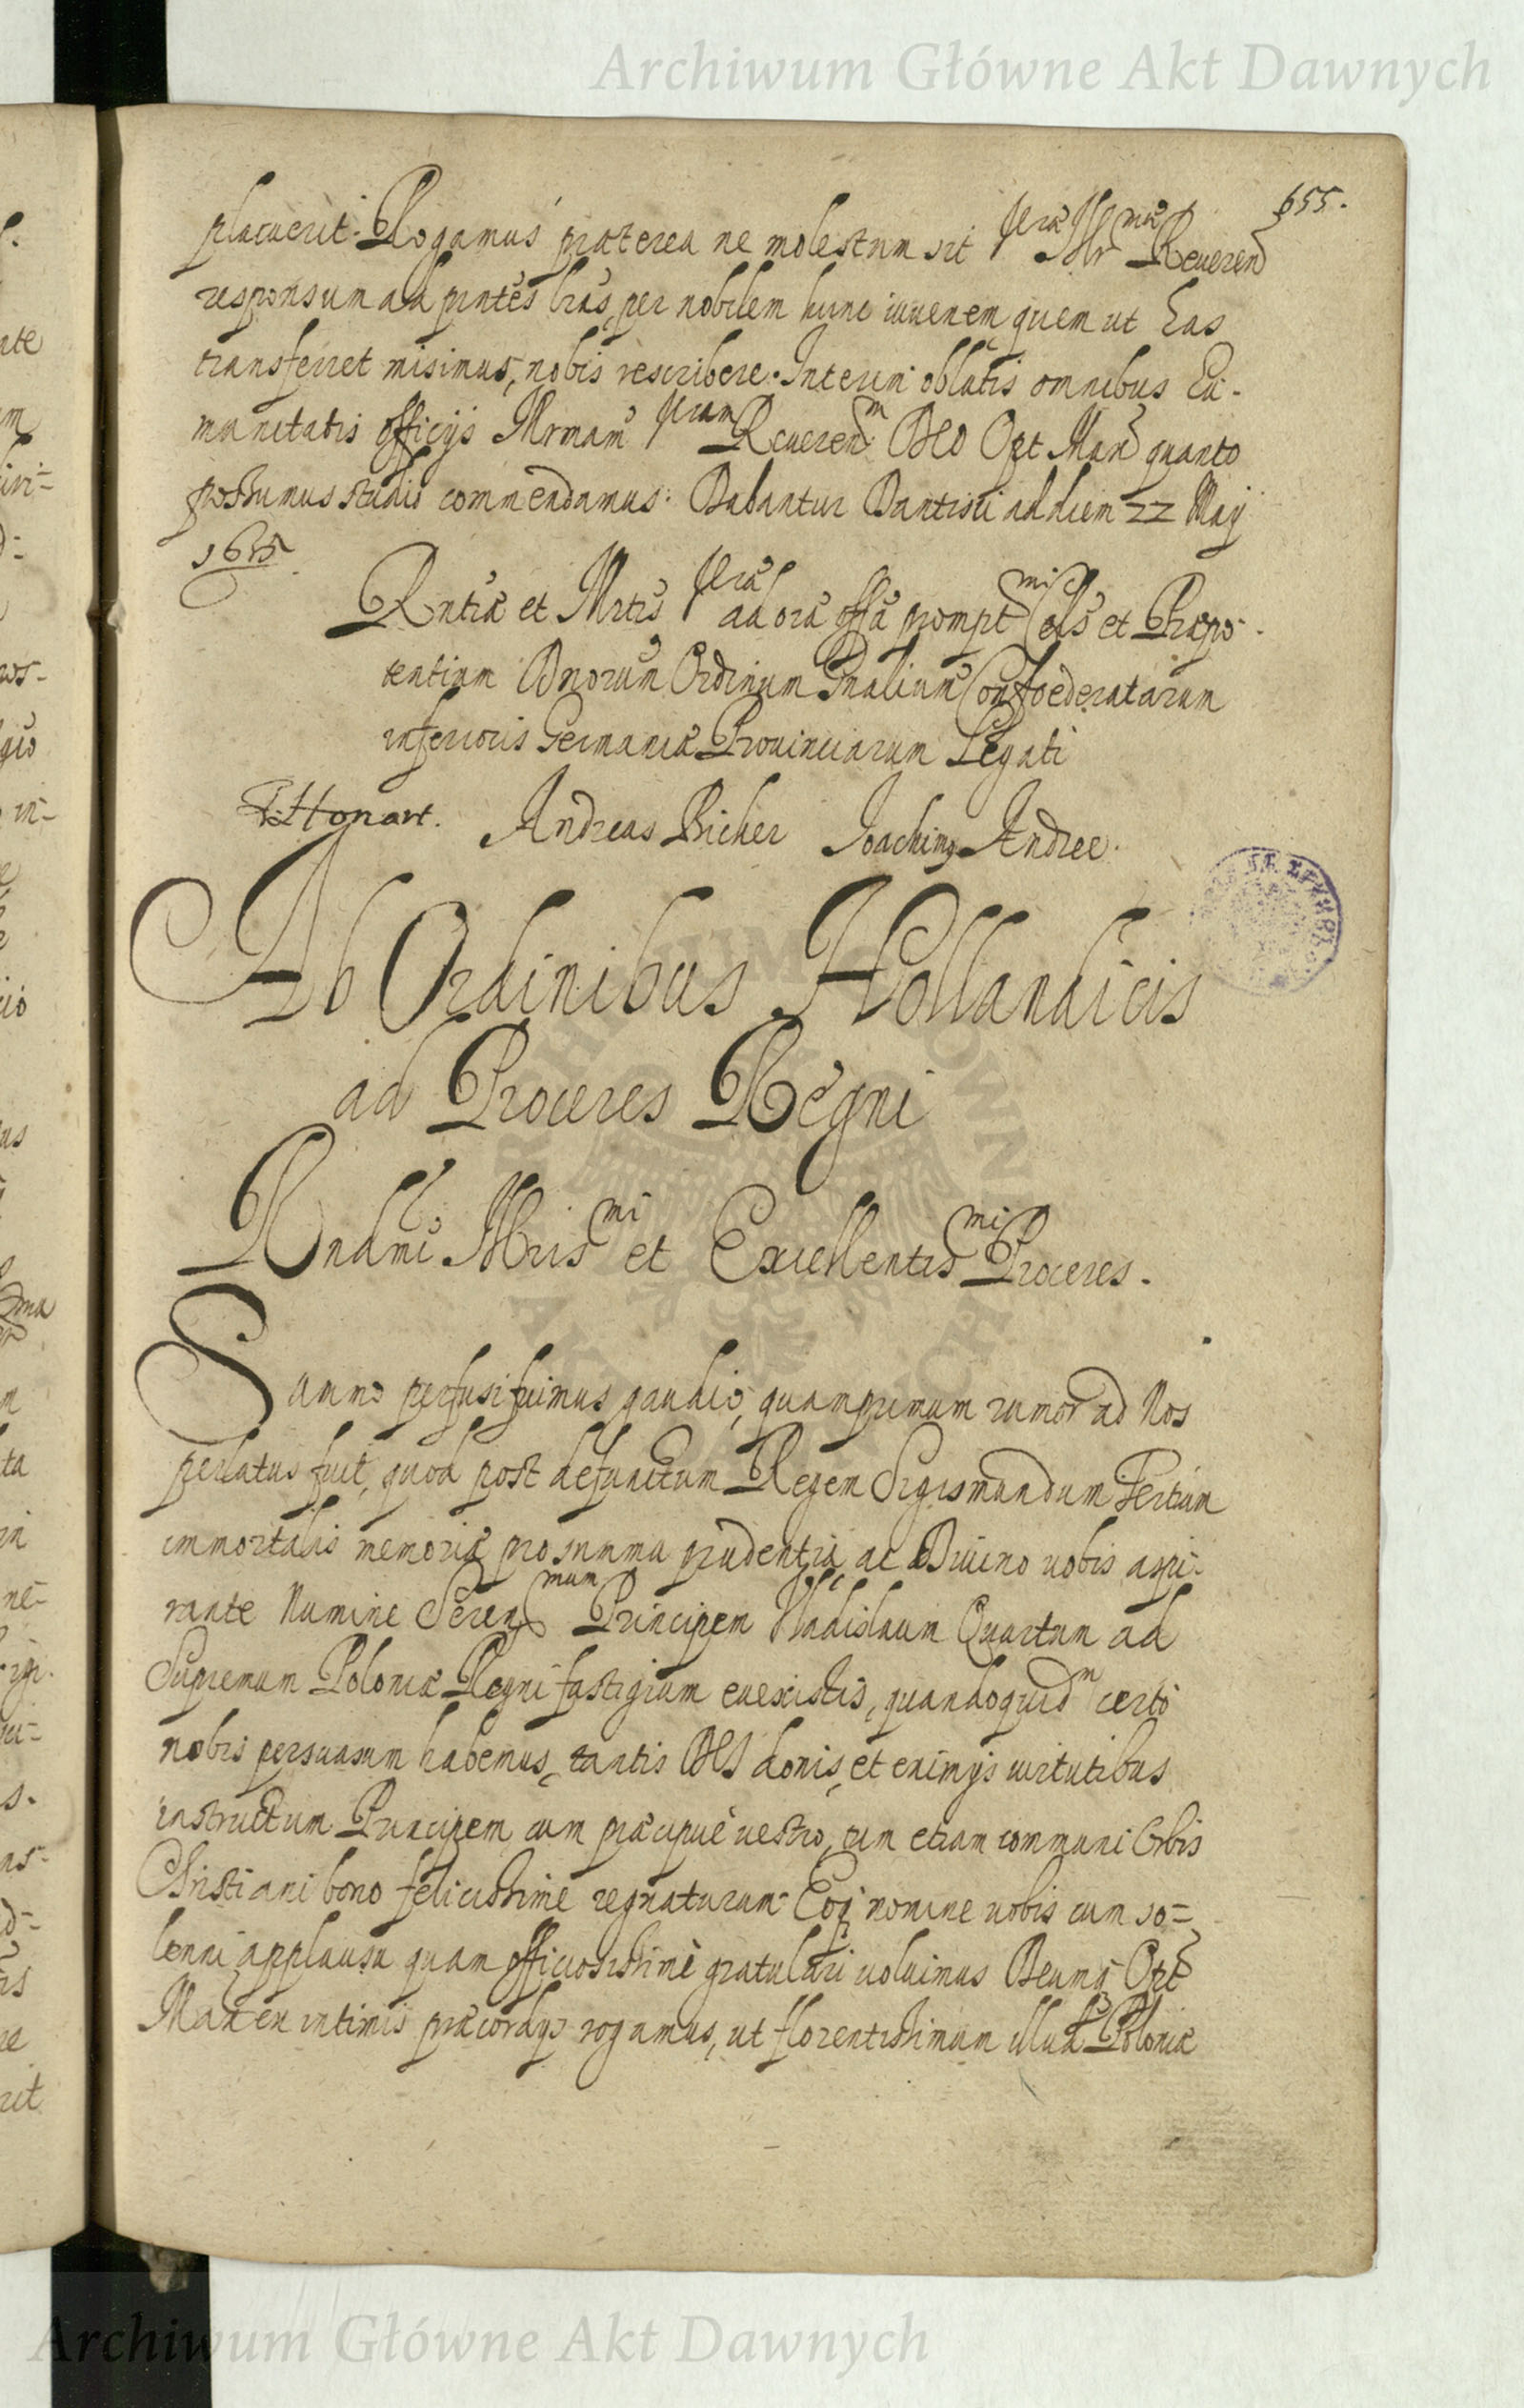 Archiwum Główne Akt Dawnych
655.
placuerit. Rogamus præterea ne molestum sit Vræ Illr næ Reueren
responsum ad pntes lras, per nobilem hunc iuuenem quem ut Eas
transferret misimus, nobis rescribere. Interim oblatis omnibus Eu-
manitatis officijs Illrmam Vram Reueren m DEO Opt Max quanto
possumus studio commendamus. Dabantur Dantisci ad diem 22 Maij
1635
Rntiæ et Illrtis Vræ ad oia offa prompt mi Cels et Præpo-
tentium Dnorum Ordinum Gnalium Confoederatarum
inferioris Germaniæ Prouinciarum Legati
Honart. Andreas Bicker Joachimq Andree.
Ab Ordinibus Hollandicis
ad Proceres Regni
Rndmi Illris mi et Excellentis mi Proceres.
Summo perfusi fuimus gaudio, quamprimum rumor ad Nos
perlatus fuit, quod post defunctum Regem Sigismundum Tertium
immortalis memoriæ pro summa prudentia, ac Diuino uobis aspi-
rante Numine Seren mum Principem Vladislaum Quartum ad
Supremum Poloniæ Regni fastigium euexistis, quandoquid m certo
nobis persuasum habemus, tantis DEI donis, et eximijs uirtutibus
instructum Principem cum præcipuè uestro, tum etiam communi Orbis
Christiani bono felicissimè regnaturum. Eoq nomine uobis cum so=
lenni applausu quam officiosissimè gratulari uoluimus Deumq Opt
Max ex intimis præcordijs rogamus, ut florentissimum illud Poloniæ
Archiwum Główne Akt Dawnych